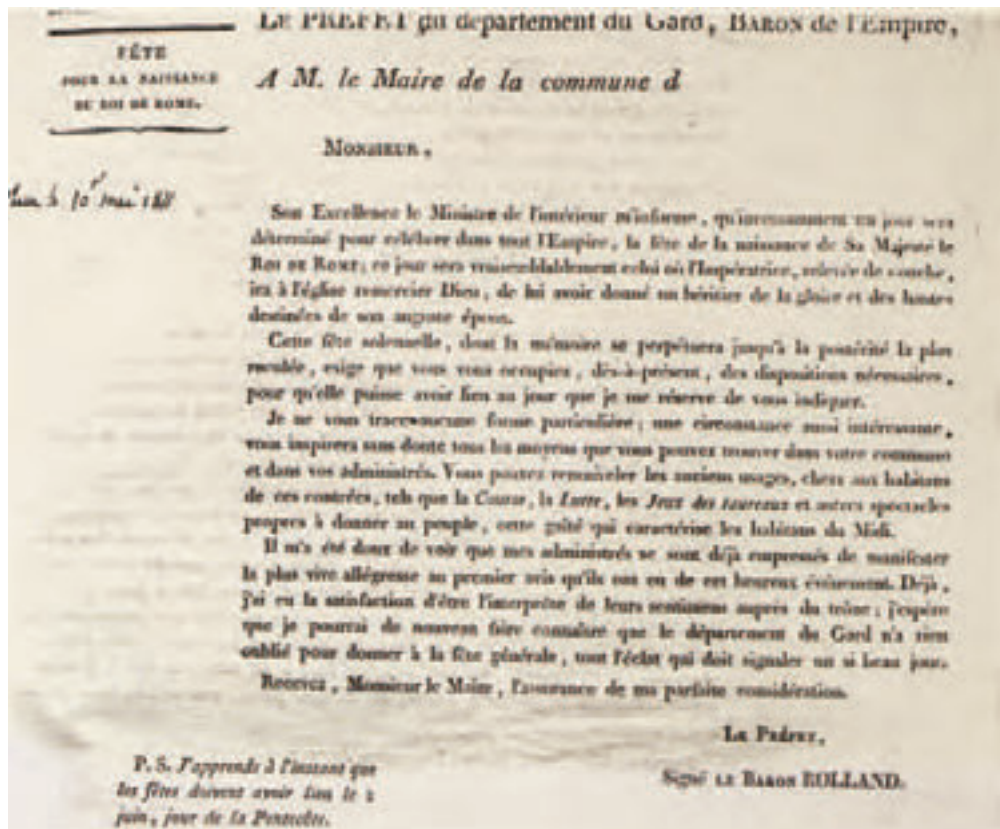 LE PRÉFET du département du Gard, BARON de l'Empire,
FÊTE
POUR LA NAISSANCE
DU ROI DE ROME.
A M. le Maire de la commune d
MONSIEUR,
10 mai
Son Excellence le Ministre de l'intérieur m'informe, qu'incessamment un jour sera
déterminé pour célébrer dans tout l'Empire, la fête de la naissance de Sa Majesté le
ROI DE ROME; ce jour sera vraisemblablement celui où l'Impératrice, relevée de couche,
ira à l'église remercier Dieu, de lui avoir donné un héritier de la gloire et des hautes
destinées de son auguste époux.
Cette fête solennelle, dont la mémoire se perpétuera jusqu'à la postérité la plus
reculée, exige que vous vous occupiez, dès-à-présent, des dispositions nécessaires,
pour qu'elle puisse avoir lieu au jour que je me réserve de vous indiquer.
Je ne vous trace aucune forme particulière; une circonstance aussi intéressante,
vous inspirera sans doute tous les moyens que vous pouvez trouver dans votre commune
et dans vos administrés. Vous pourrez renouveler les anciens usages, chers aux habitans
de ces contrées, tels que la Course, la Lutte, les Jeux des taureaux et autres spectacles
propres à donner au peuple, cette gaîté qui caractérise les habitans du Midi.
Il m'a été doux de voir que mes administrés se sont déjà empressés de manifester
la plus vive allégresse au premier avis qu'ils ont eu de cet heureux événement. Déjà,
j'ai eu la satisfaction d'être l'interprète de leurs sentimens auprès du trône; j'espère
que je pourrai de nouveau faire connaître que le département du Gard n'a rien
oublié pour donner à la fête générale, tout l'éclat qui doit signaler un si beau jour.
Recevez, Monsieur le Maire, l'assurance de ma parfaite considération.
LE PRÉFET,
Signé LE BARON ROLLAND.
P. S. J'apprends à l'instant que
les fêtes doivent avoir lieu le 2
juin, jour de la Pentecôte.